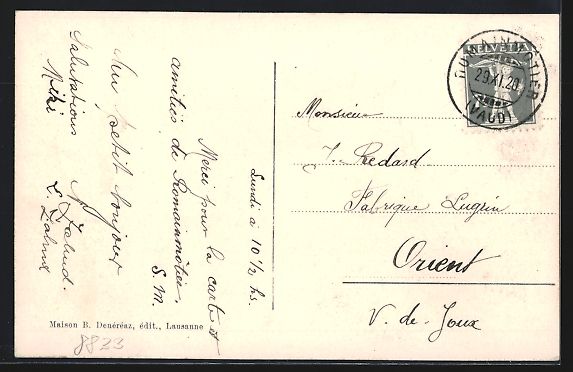 Lundi à 10 ½ hs.
Merci pour la carte et
amitiés de Romainmôtier.
S. M.
Un petit bonjour
Salutations
Miki
HELVETIA
ROMAINMÔTIER
29.XI.20
(VAUD)
Monsieur
J. Redard
Fabrique Lugrin
Orient
V. de Joux
Maison B. Denéréaz, édit., Lausanne
8823